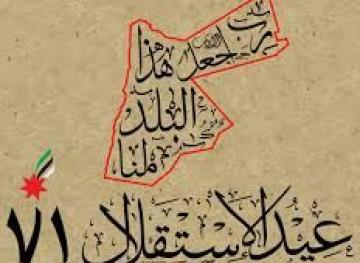 رب
اجعل هذا
البلد
آمنا
عيد الإستقلال ٧١